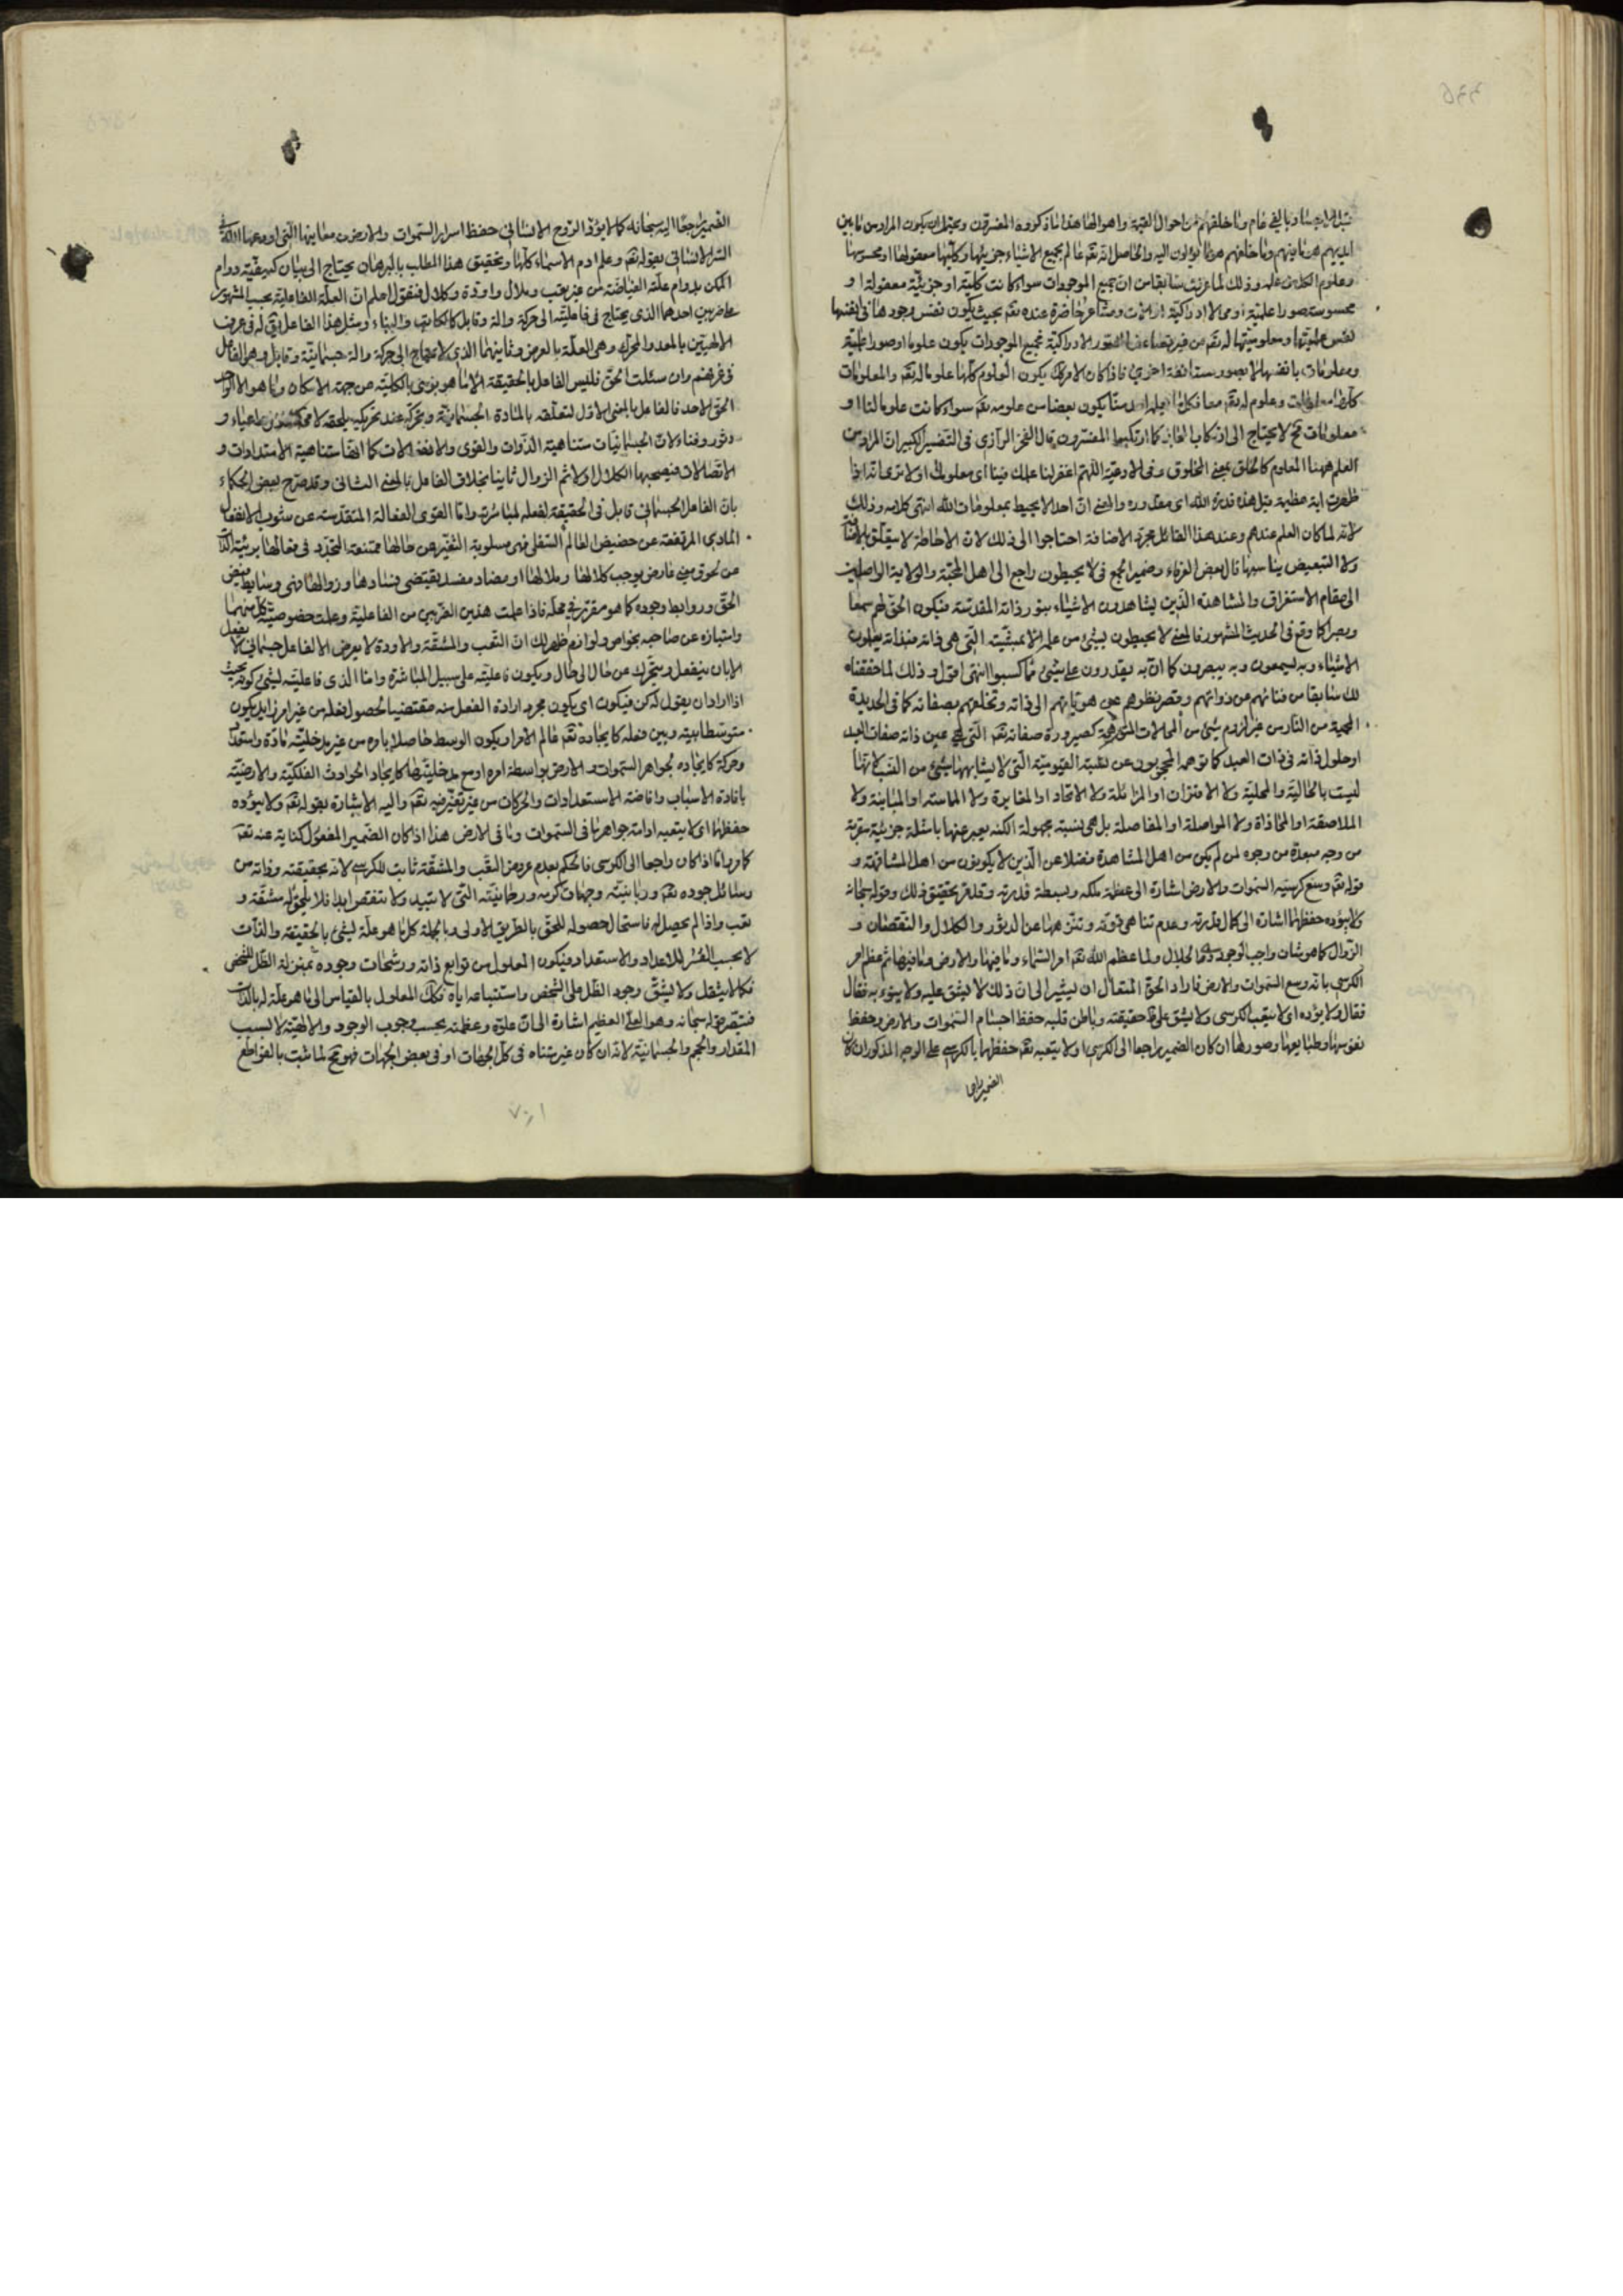 ايديهم ما بينهم وما خلفهم ما يؤلون اليه والحاصل انه تقم عالم بجميع الاشياء جزئيها وكليها معقولها او محسوسها
وعلوم الخلائق علمه وذلك لما عرفت سابقا من ان جميع الموجودات سواء كانت كلية او جزئية معقولة او
محسوسة صورا علمية حاضرة عنده تقم بحيث يكون نفس وجودها في انفسها
نفس عالميتها ومعلوميتها له تقم من غير
ومعلومات بانفسها لا بصور مستانفة اخرى فاذا كان الامر كك يكون العلوم كلها علوما له تقم والمعلومات
معلومات فح لا يحتاج الى ارتكاب المجاز كما ارتكبه المفسرون قال الفخر الرازي في التفسير الكبير ان المراد من
العلم ههنا المعلوم كالخلق بمعنى المخلوق وفي الادعية اللهم اغفر لنا علمك فينا اي معلومك او لا ترى انه اذا
ظهرت اية عظيمة قيل هذه قدرة الله اي مقدوره والمعنى ان احدا لا يحيط بمعلومات الله انتهى كلامه وذلك
لانه لما كان العلم عندهم وعند هذا القائل مجرد الاضافة احتاجوا الى ذلك لان الاحاطة لا يتعلق بالاضافة
ولا التبعيض يناسبها قال بعض العرفاء وضمير الجمع في لا يحيطون راجع الى اهل المحبة والولاية الواصلين
الى مقام الاستغراق والمشاهدة الذين يشاهدون الاشياء بنور ذاته المقدسة فيكون الحق لهم سمعا
وبصرا كما وقع في الحديث المشهور فالمعنى لا يحيطون بشيء من علمه الا بمشيته التي هي ذاته فبذاته يعلمون
الاشياء وبه يسمعون وبه يبصرون كما ان به يقدرون على شيء مما كسبوا انتهى اقول وذلك لما حققناه
لك سابقا من فنائهم عن ذواتهم وقصر نظرهم عن هوياتهم الى ذاته وتخلقهم بصفاته كما في الحديدة
المحمية من النار من غير لزوم شيء من المحالات كصيرورة صفاته تقم التي هي عين ذاته صفات العبد
او حلول ذاته في ذات العبد كما توهمه المحجوبون عن نسبة القيومية التي لا يشابهها شيء من النسب لانها
ليست بالحالية والمحلية ولا الاقتران او المزائلة ولا الاتحاد او المغايرة ولا المماسة او المباينة ولا
الملاصقة او المحاذاة ولا المواصلة او المفاصلة بل هي نسبة مجهولة الكنه يعبر عنها بامثلة جزئية مقربة
من وجه مبعدة من وجوه لمن لم يكن من اهل المشاهدة فضلا عن الذين لا يكونون من اهل المشافهة و
قوله تقم وسع كرسيه السموات والارض اشارة الى عظمة ملكه وبسطة قدرته وقد مر تحقيق ذلك وقوله سبحانه
ولا يؤده حفظهما اشارة الى كمال قدرته وعدم تناهي قوته وتنزهها عن الدثور والكلال والنقصان و
الزوال كما هو شان واجب الوجود ولما عظم الله تقم امر السماء وما فيها والارض وما فيها ثم عظم امر
الكرسي بانه وسع السموات والارض فاراد الحق المتعال ان يشير الى ان ذلك لا يشق عليه ولا ينوء به فقال
فقال ولا يؤده اي لا يتعب الكرسي ولا يشق على حقيقته وباطن قلبه حفظ اجسام السموات والارض وحفظ
نفوسها وطبايعها وصورها ان كان الضمير راجعا الى الكرسي او لا يتعبه تقم حفظهما بالكرسي على الوجه المذكور ان كان
الضمير راجعا
الضمير راجعا اليه سبحانه كما لا يؤد الروح الانساني حفظ اسرار السموات والارض ومعانيها التي اودعها الله في
السر الانساني بقوله تقم وعلم ادم الاسماء كلها وتحقيق هذا المطلب بالبرهان يحتاج الى بيان كيفية دوام
الممكن بدوام علته الفياضة من غير تعب وملال واودة وكلال فنقول اعلم ان العلة الفاعلية بحسب المشهور
على ضربين احدهما الذي يحتاج في فاعليته الى حركة والة وقابل كالكاتب والبناء ومثل هذا الفاعل يق له في عرف
الالهيين بالمعد والمحرك وهي العلة بالعرض وثانيهما الذي لا يحتاج الى حركة والة جسمانية وقابل وهو الفاعل
في عرفهم وان سئلت الحق فليس الفاعل بالحقيقة الا ما هو بري بالكلية من جهة الامكان وما هو الا الواحد
الحق الاحد فالفاعل بالمعنى الاول لتعلقه بالمادة الجسمانية وتحركه عند تحريكه يلحقه لا محة اعياء و
دثور وفناء لان الجسمانيات متناهية الذوات والقوى والانفعالات كما انها متناهية الامتدادات و
الاتصالات فيصحبها الكلال اولا ثم الزوال ثانيا بخلاف الفاعل بالمعنى الثاني وقد صرح بعض الحكماء
بان الفاعل الجسماني قابل في الحقيقة لفعله لمباشرته واما القوى الفعالة المتقدسة عن شوب الانفعال
المادي المرتفعة عن حضيض العالم السفلي فهي مسلوبة التغير عن حالها ممتنعة التجدد في فعالها بريئة الذات
عن لحوق معنى عارض يوجب كلالها وملالها او مضاد مفسد يقتضي فسادها وزوالها فهي وسايط فيض
الحق وروابط وجوده كما هو مقرر في محله فاذا علمت هذين الضربين من الفاعلية وعلمت خصوصية كل منهما
وامتيازه عن صاحبه بخواص ولوازم ظهر لك ان التعب والمشقة والاودة لا يعرض الا لفاعل جسماني لا يفعل
الا بان ينفعل ويتحرك عن حال الى حال ويكون فاعليته على سبيل المباشرة واما الذي فاعليته لشيء كونه بحيث
اذا اراد ان يقول له كن فيكون اي يكون مجرد ارادة الفعل منه مقتضيا لحصول فعله من غير امر زايد يكون
متوسطا بينه وبين فعله كايجاده تقم عالم الامر او يكون الوسط حاصلا بامره من غير مدخلية مادة واستعداد
وحركة كايجاده لجواهر السموات والارض بواسطة امره او مع مدخليتها كايجاد الحوادث الفلكية والارضية
بافادة الاسباب وافاضة الاستعدادات والحركات من غير تغير فيه تقم واليه الاشارة بقوله تقم ولا يؤده
حفظهما اي لا يتعبه ادامة جواهر ما في السموات وما في الارض هذا اذا كان الضمير المفعول كناية عنه تقم
كما مر واما اذا كان راجعا الى الكرسي فالحكم بعدم عروض التعب والمشقة ثابت للكرسي لانه بحقيقته وذاته من
رسائل جوده تقم وربانيته وجهات كرمه ورحمانيته التي لا تبيد ولا تنقص ابدا فلا يلحق له مشقة و
تعب واذا لم يحصل له فاستحال حصوله للحق بالطريق الاولى وبالجملة كل ما هو علة لشيء بالحقيقة والذات
لا بحسب القسر للاعداد والاستعداد فيكون المعلول من توابع ذاته ورشحات وجوده بمنزلة الظل للشخص
فكما لا يثقل ولا يشق وجود الظل على الشخص واستتباعه اياه فكك المعلول بالقياس الى ما هو علة له بالذات
فيشعر قوله سبحانه وهو العلي العظيم اشارة الى ان علوه وعظمته بحسب وجوب الوجود والالهية لا بسبب
المقدار والحجم والجسمانية لانه ان كان غير متناه في كل الجهات او في بعض الجهات فهو مح لما ثبت بالقواطع